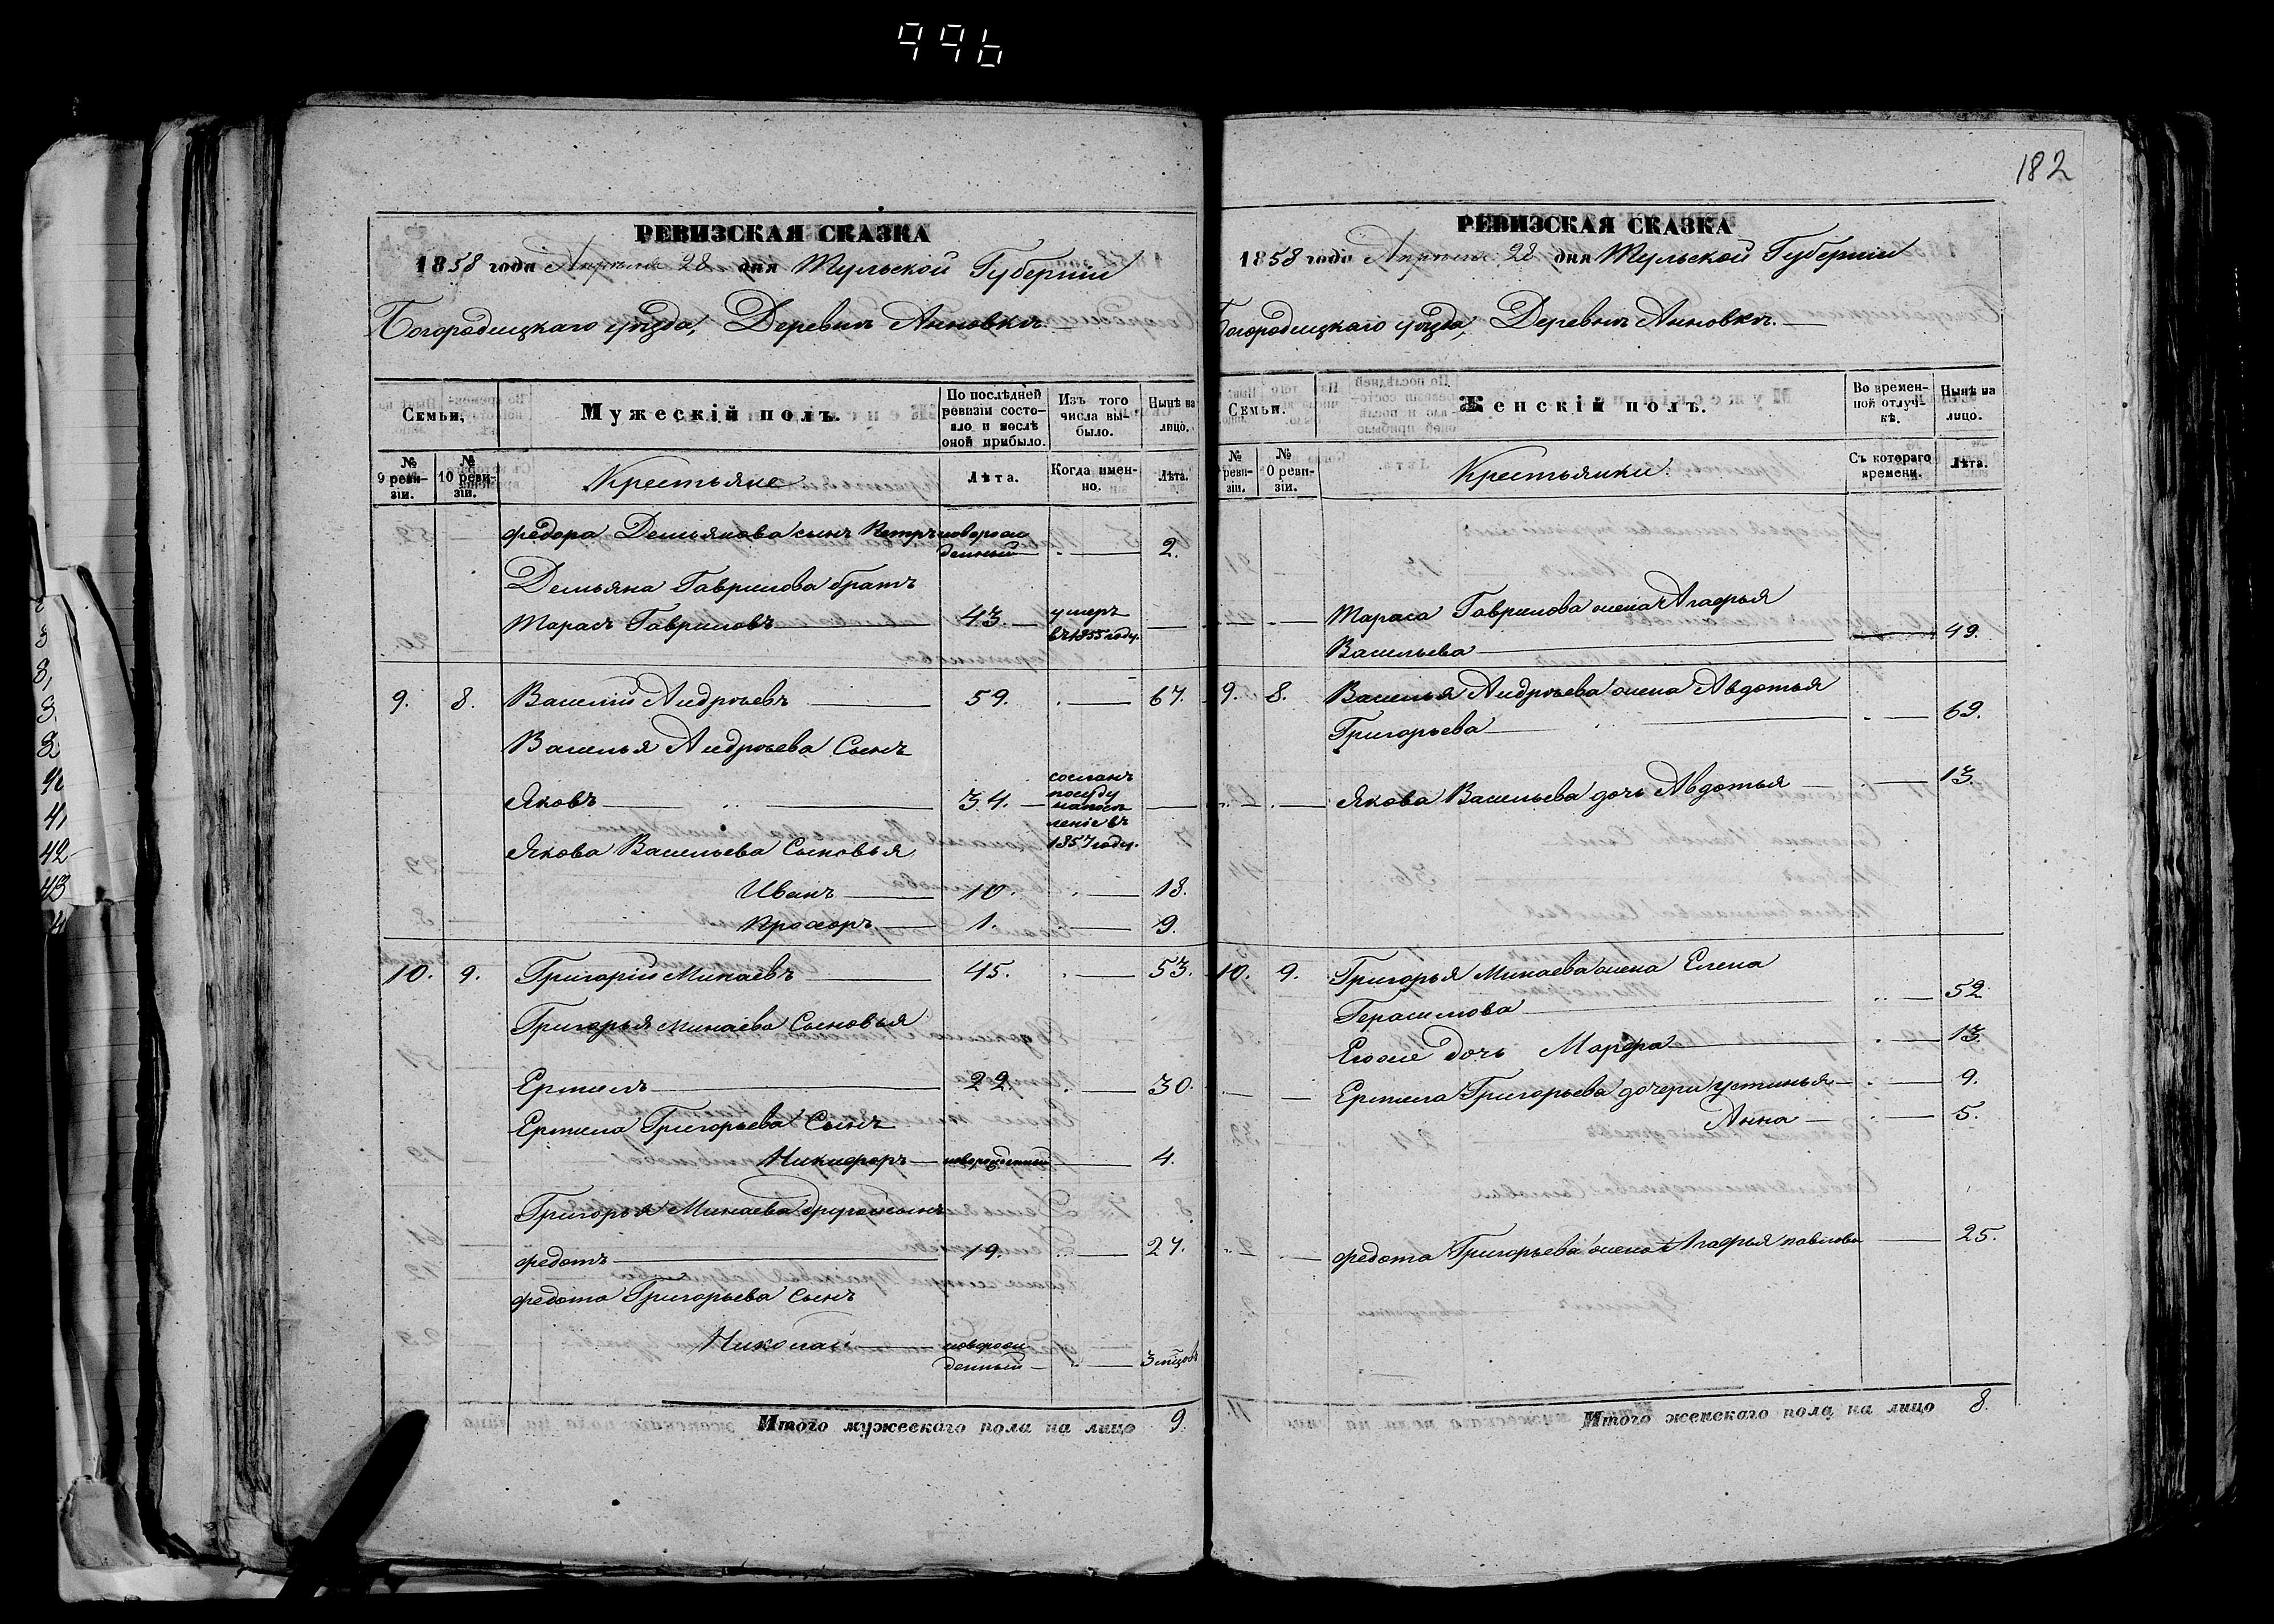 996
182
РЕВИЗСКАЯ СКАЗКА
1858 года Апреля 28 дня Тульской Губернии
Богородицкаго уѣзда, Деревни Анновки.
Семьи, Мужескій полъ. По послѣдней ревизіи состояло и послѣ оной прибыло. Изъ того числа выбыло. Нынѣ на лицо.
№ 9 ревизіи. № 10 ревизіи. Крестьяне Лѣта. Когда именно. Лѣта.
Федора Демьянова сынъ Петръ новорожденный 2.
Демьяна Гаврилова братъ
Тарасъ Гавриловъ 43. умеръ въ 1855 году.
9. 8. Василій Андреевъ 59. 67.
Василья Андреева Сынъ
Яковъ 34. сосланъ на поселеніе въ 1857 году.
Якова Васильева Сыновья
Иванъ 10. 18.
Прохоръ 1. 9.
10. 9. Григорій Минаевъ 45. 53.
Григорья Минаева Сыновья
Ермилъ 22. 30.
Ермила Григорьева Сынъ
Никифоръ новорожденный 4.
Григорья Минаева другой сынъ
Федотъ 19. 27.
Федота Григорьева сынъ
Николай новорожденный 3 мѣсцовъ
Итого мужескаго пола на лицо 9.
РЕВИЗСКАЯ СКАЗКА
1858 года Апреля 28 дня Тульской Губерніи
Богородицкаго уѣзда, Деревни Анновки.
Семьи. Женскій полъ. Во временной отлучкѣ. Нынѣ на лицо.
№ ревизіи. № 0 ревизіи. Крестьянки Съ котораго времени. Лѣта.
Тараса Гаврилова жена Агафья
Васильева 49.
9. 8. Василья Андреева жена Авдотья
Григорьева 69.
Якова Васильева дочь Авдотья 13.
10. 9. Григорья Минаева жена Елена
Герасимова 52
Егоже дочь Марфа 13.
Ермила Григорьева дочери Устинья 9.
Анна 5.
Федота Григорьева жена Агафья Павлова 25.
Итого женскаго пола на лицо 8.